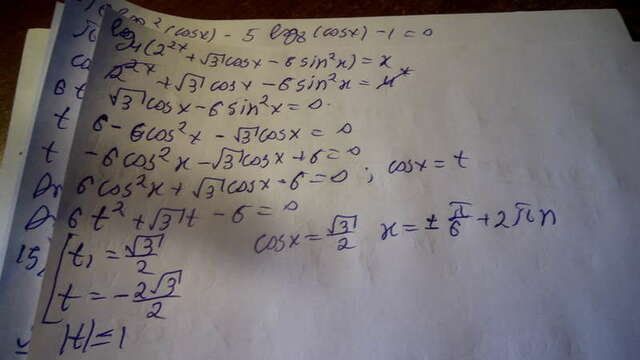 log₈²(cosx) - 5 log₈(cosx) - 1 = 0
log₄(2²ˣ + √3 cosx - 6 sin²x) = x
2²ˣ + √3 cosx - 6 sin²x = 4ˣ
√3 cosx - 6 sin²x = 0.
6 - 6cos²x - √3 cosx = 0
-6cos²x - √3 cosx + 6 = 0
6cos²x + √3 cosx - 6 = 0 ; cosx = t
6t² + √3 t - 6 = 0
t₁ = √3/2 cosx = √3/2 x = ± π/6 + 2πn
t = - 2√3/2
|t| ≤ 1
15)